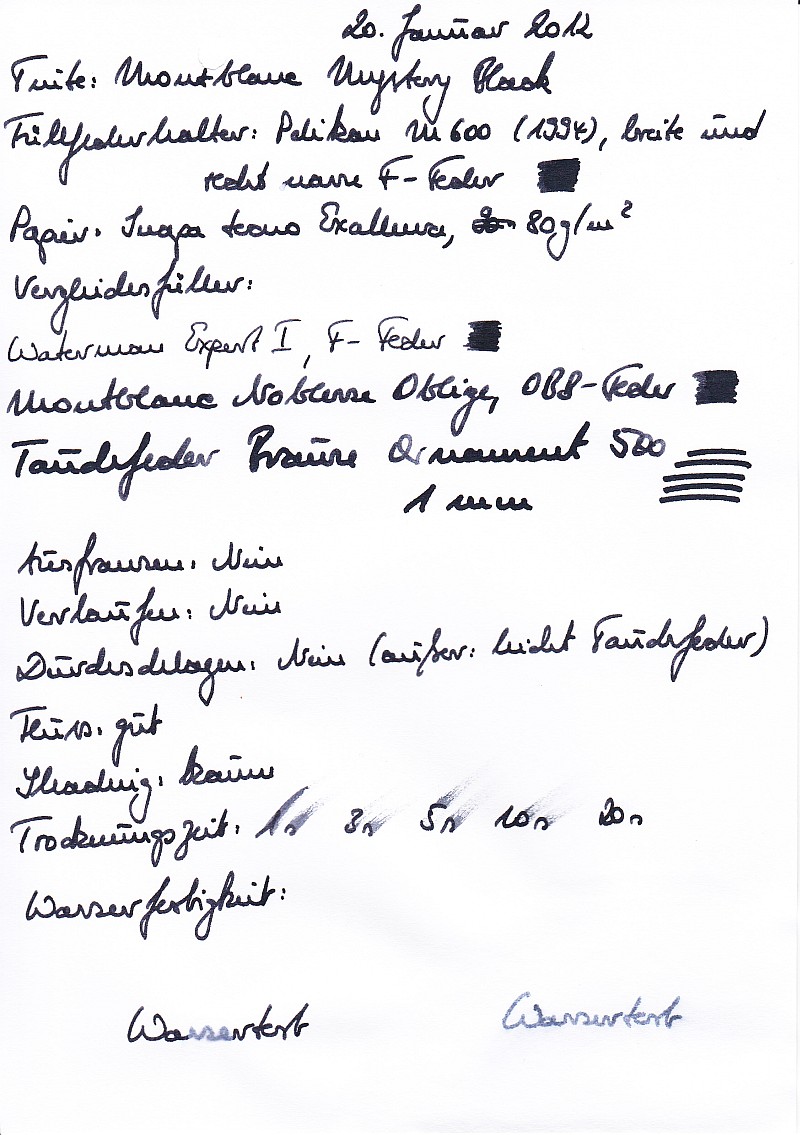 20. Januar 2012
Tinte: Montblanc Mystery Black
Füllfederhalter: Pelikan M600 (1994), breite und
recht nasse F-Feder
Papier: Inapa tecno Excellence, 80g/m²
Vergleichsfüller:
Waterman Expert I, F-Feder
Montblanc Noblesse Oblige, OBB-Feder
Tauchfeder Brause Ornament 500
1 mm
Ausfransen: Nein
Verlaufen: Nein
Durchschlagen: Nein (außer: leicht Tauchfeder)
Fluss: gut
Shading: kaum
Trocknungszeit: 1s 3s 5s 10s 20s
Wasserfestigkeit:
Wassertest Wassertest